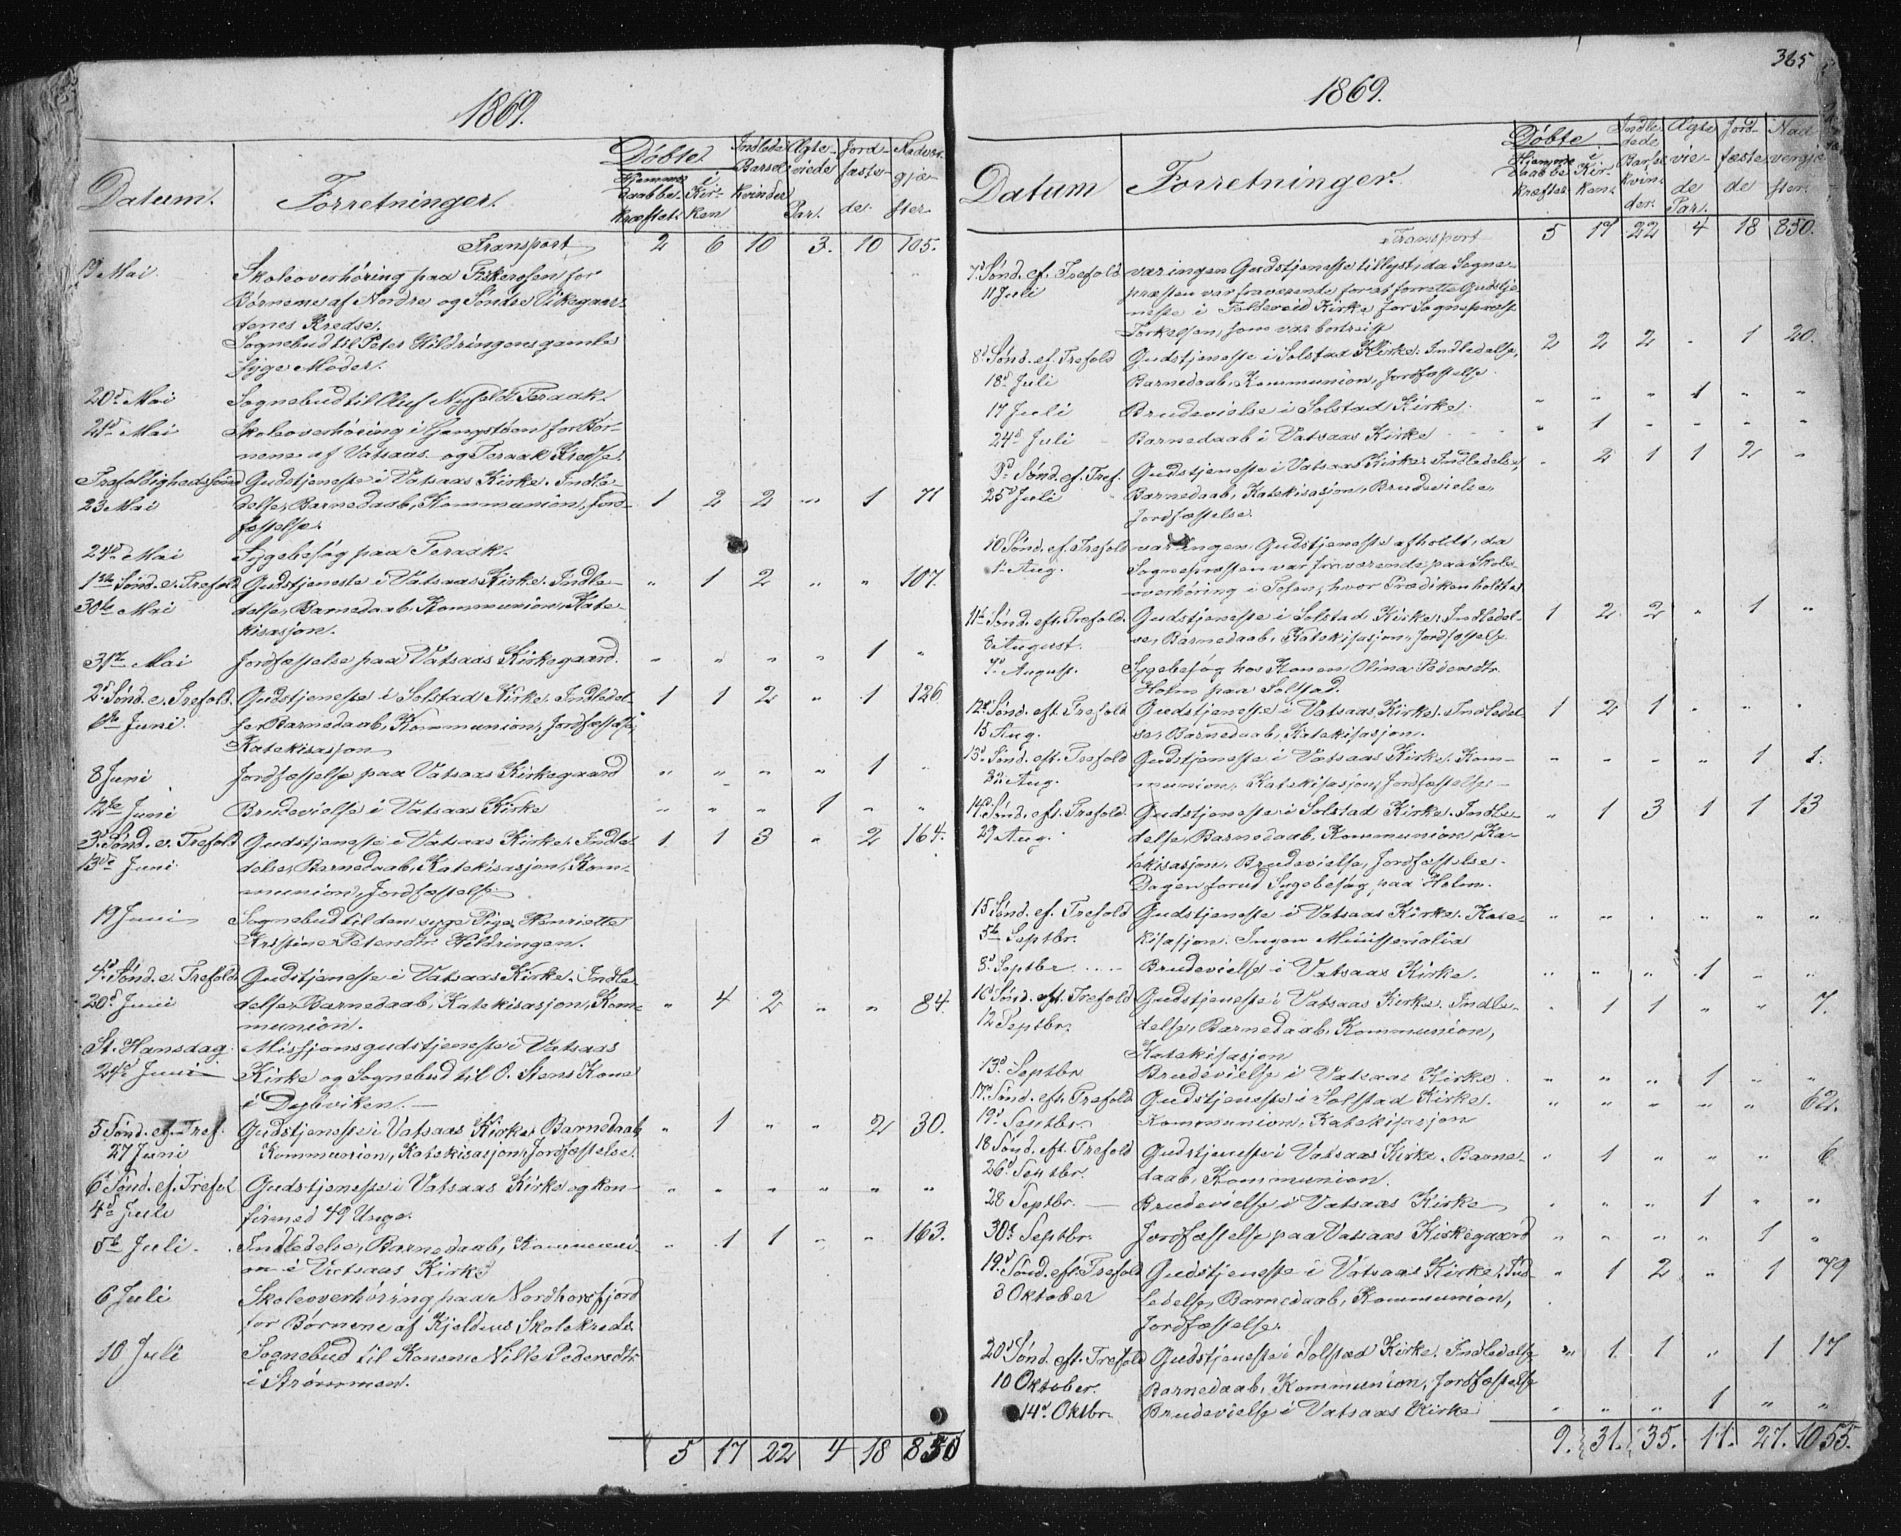 1869.
Datum.
Forretninger.
Døbte.
Hjemme
daabbe-
kræftet.
i
Kir-
ken
Indlede
Barsel
kvinder
Ægte-
viede
Par.
Jord-
fæste-
de.
Nadver-
gjæ-
ster.
Transport 2 6 10 3. 10 105.
19 Mai Skoleoverhøring paa Fiskerosen for
Børnene af Nordre og Søndre Vikegaar-
denes Kredse.
Sognebud til Peter Hildringens gamle
syge Moder.
20d Mai Sognebud til Oluf Teraak.
21d Mai Skoleoverhøring i Gangstøen for Bør-
nene af Vatsaas og Teraak Kredse.
Trefoldighedssønd Gudstjeneste i Vatsaas Kirke. Indle-
23 Mai delse, Barnedaab, Kommunion, Jord- 1 2 2 " 1 71
fæstelse.
24d Mai Sygebesøg paa Teraak.
1ste Sønd. e. Trefold Gudstjeneste i Vatsaas Kirke. Indle- " 1 2 " " 107.
30te Mai delse, Barnedaab, Kommunion, Kate-
kisasjon.
31te Mai Jordfæstelse paa Vatsaas Kirkegaard. " " " " 1 "
2d Sønd. e. Trefold. Gudstjeneste i Solstad Kirke. Indledel- 1 1 2 " 1 126
6te Juni. se, Barnedaab, Kommunion, Jordfæstelse,
Katekisasjon
8 Juni Jordfæstelse paa Vatsaas Kirkegaard " " " " 1 "
12te Juni Brudevielse i Vatsaas Kirke " " " 1 " "
3d Sønd. e. Trefold Gudstjeneste i Vatsaas Kirke. Indle- 1 1 3 " 2 164.
13de Juni delse, Barnedaab, Katekisasjon, Kom-
munion, Jordfæstelse.
19 Juni Sognebud til den syge Pige Henriette
Kristine Petersdtr Hildringen.
4d Sønd. e. Trefold Gudstjeneste i Vatsaas Kirke. Indle-
20d Juni delse, Barnedaab, Katekisasjon, Kom- " 4 2 " " 84.
munion.
St. Hansdag Missjonsgudstjeneste i Vatsaas
24d Juni Kirke og Sognebud til O. Stens Kone
i Dybviken.
5 Sønd. ef. Tref. Gudstjeneste i Vatsaas Kirke, Barnedaab, " 1 " " 2 30.
27 Juni Kommunion, Katekisasjon, Jordfæstelse.
6d Sønd. ef. Trefol Gudstjeneste i Vatsaas Kirke og kon- " " " " " "
4d Juli firmed 49 Unge.
5te Juli Indledelse, Barnedaab, Kommuni- " 1 1 " " 163.
on i Vatsaas Kirke
6 Juli Skoleoverhøring paa Nordhorsfjord
for Børnene af Kjeldens Skolekreds.
10 Juli Sognebud til Konen Nille Pedersdtr
i Strømmen.
5 17 22 4 18 850
365
1869.
Datum
Forretninger.
Døbte
Hjemme
daabbe
kræftet
i
Kir-
ken.
Indle-
dede
Barsel
kvin-
der.
Ægte
vie-
de
Par.
Jord-
fæste
de
Nad
vergjæ
ster.
Transport 5 17 22 4 18 850.
7d Sønd. ef. Trefold var ingen Gudstjeneste tillyst, da Sogne-
11 Juli præsten var fraværende for at forrette Gudstje-
neste i Foldereid Kirke for Sognepræst
Torkelsen, som var bortreist
8d Sønd. ef. Trefold Gudstjeneste i Solstad Kirke. Indledelse, 2 2 2 " 1 20.
18d Juli Barnedaab, Kommunion, Jordfæstelse
17 Juli Brudevielse i Solstad Kirke. " " " 1 " "
24d Juli Barnedaab i Vatsaas Kirke " 1 " " " "
9d Sønd. ef. Tref. Gudstjeneste i Vatsaas Kirke. Indledelse, " 2 1 1 2 "
25d Juli Barnedaab, Katekisasjon, Brudevielse,
Jordfæstelse.
10 Sønd. ef. Trefold var ingen Gudstjeneste afholdt, da
1. Aug. Sognepræsten var fraværende paa Skole-
overhøring i Tosen, hvor Prædiken holdtes
11te Sønd. eft. Trefold. Gudstjeneste i Solstad Kirke. Indledel- 1 2 2 " 1 "
8 August. se, Barnedaab, Katekisasjon, Jordfæstelse
7d August. Sygebesøg hos Konen Olina Pedersdtr
Holm paa Solstad.
12te Sønd. eft. Trefold Gudstjeneste i Vatsaas Kirke. Indledel- 1 2 1 " " "
15 Aug. se, Barnedaab, Katekisasjon.
13d Sønd. eft. Trefold Gudstjeneste i Vatsaas Kirke. Kom- " " " " 1 1.
22 Aug. munion, Katekisasjon, Jordfæstelse
14d Sønd. eft. Trefold. Gudstjeneste i Solstad Kirke. Indle- " 1 3 1 1 13
29 Aug. delse, Barnedaab, Kommunion, Ka-
tekisasjon, Brudevielse, Jordfæstelse.
Dagen forud Sygebesøg paa Holm.
15 Sønd. ef. Trefold Gudstjeneste i Vatsaas Kirke. Kate- " " " " " "
5te Septbr. kisasjon. Ingen Ministerialia
8d Septbr. Brudevielse i Vatsaas Kirke. " " " 1 " "
16d Sønd. eft. Trefold Gudstjeneste i Vatsaas Kirke. Indle- " 1 1 " " 7.
12 Septbr. delse, Barnedaab, Kommunion,
Katekisasjon
13d Septbr Brudevielse i Vatsaas Kirke. " " " 1 " "
17d Sønd. eft. Trefold Gudstjeneste i Solstad Kirke. " " " " " 62.
19d Septbr. Kommunion, Katekisasjon
18 Sønd. eft. Trefold Gudstjeneste i Vatsaas Kirke. Barne- " 1 " " " 6
26d Septbr. daab, Kommunion.
28 Septbr. Brudevielse i Vatsaas Kirke " " " 1 " "
30d Septbr. Jordfæstelse paa Vatsaas Kirkegaard " " " " 1 "
19d Sønd. ef. Trefold Gudstjeneste i Vatsaas Kirke. Ind- " 1 2 " 1 79
3 Oktober ledelse, Barnedaab, Kommunion,
Jordfæstelse.
20d Sønd. eft. Trefold Gudstjeneste i Solstad Kirke. Indledelse " 1 1 " 1 17
10 Oktober. Barnedaab, Kommunion, Jordfæstelse
14d Oktbr. Brudevielse i Vatsaas Kirke " " " 1 " "
9. 31. 35. 11. 27. 1055.